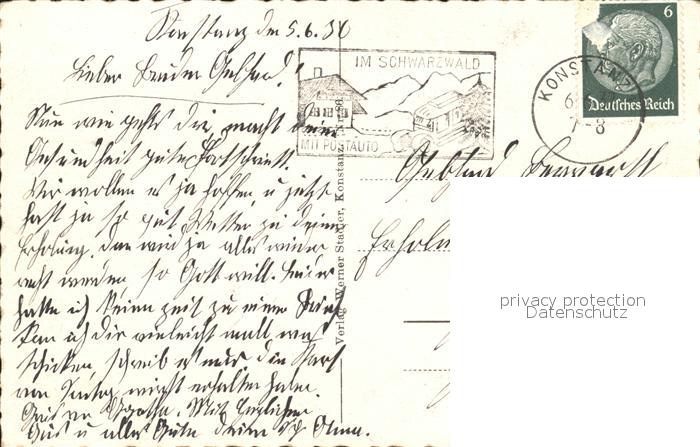 Konstanz den 5.6.36
Lieber Bruder Gebhard!
Nun wie gehts dir, macht deine
Gesundheit gute Fortschritte.
Wir wollen es ja hoffen, u jetzt
hast ja so gut Wetter zu deiner
Erholung, dan wird ja alles wieder
recht werden so Gott will. Leider
hatte ich keinen zeit zu einem
kan ich dir vielleicht mall was
schicken, schreib es mir, die Karte
von Sontag wirst erhalten haben.
Gus von Agatha. Mit herzlichem
Grus u alles Gute deine Anna.
IM SCHWARZWALD
MIT POSTAUTO
KONSTANZ
7-8
6
Deutsches Reich
Verlag Werner Stadler, Konstanz
Gebhard
Erholu
privacy protection
Datenschutz